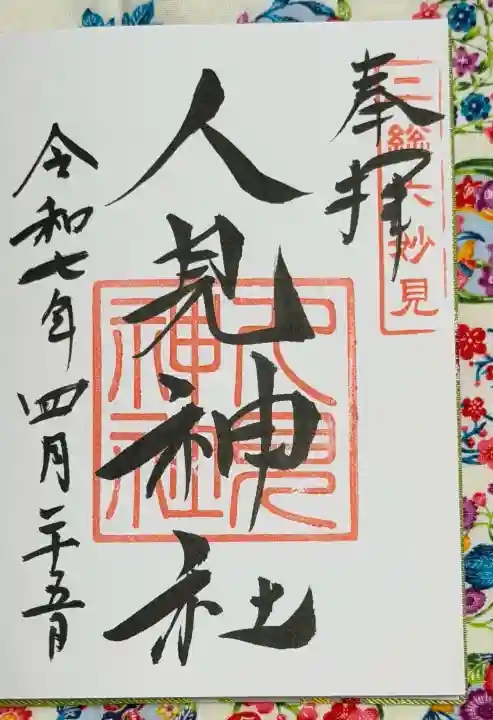 奉拝
二総六妙見
人見神社
人見神社
令和七年四月二十五日